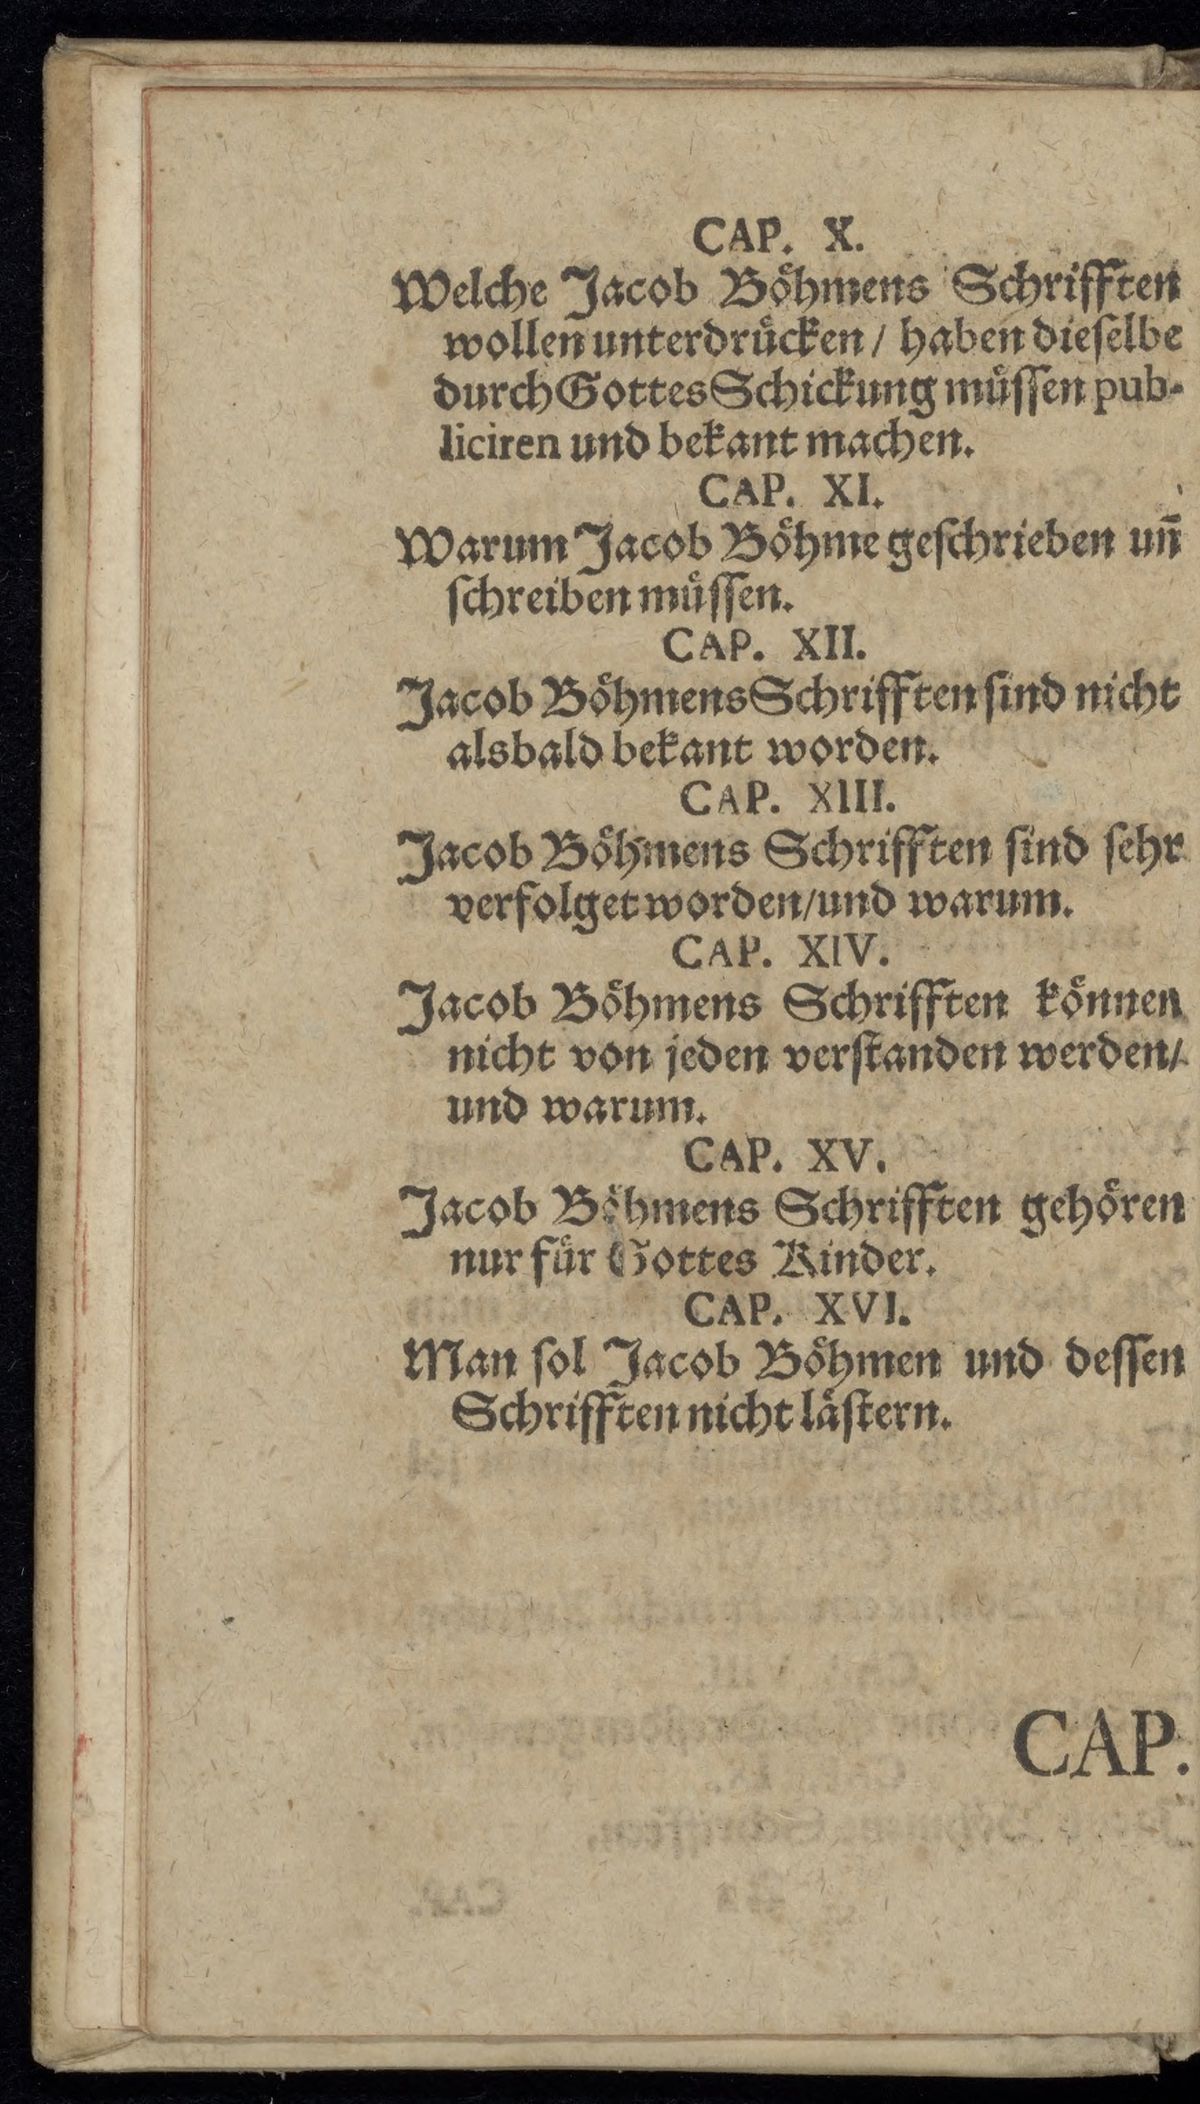 CAP. X.
Welche Jacob Boͤhmens Schrifften
wollen unterdruͤcken / haben dieſelbe
durch Gottes Schickung muͤſſen pub-
liciren und bekant machen.
CAP. XI.
Warum Jacob Boͤhme geſchrieben uñ
ſchreiben muͤſſen.
CAP. XII.
Jacob Boͤhmens Schrifften ſind nicht
alsbald bekant worden.
CAP. XIII.
Jacob Boͤhmens Schrifften ſind ſehr
verfolget worden/und warum.
CAP. XIV.
Jacob Boͤhmens Schrifften koͤnnen
nicht von jeden verſtanden werden/
und warum.
CAP. XV.
Jacob Boͤhmens Schrifften gehoͤren
nur fuͤr Gottes Kinder.
CAP. XVI.
Man ſol Jacob Boͤhmen und deſſen
Schrifften nicht laͤſtern.
CAP.